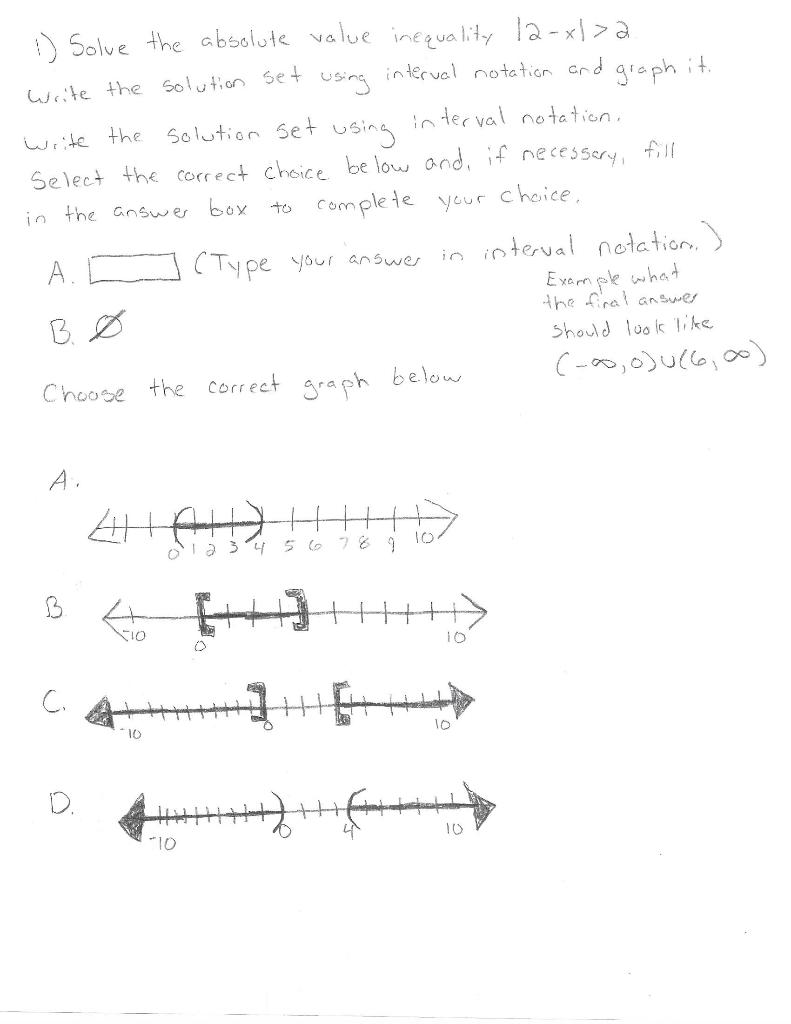 1) Solve the absolute value inequality |2-x|>2
Write the solution set using interval notation and graph it.
Write the solution set using interval notation.
Select the correct choice below and, if necessary, fill
in the answer box to complete your choice.
A. (Type your answer in interval notation.)
Example what
the final answer
should look like
(-∞,0)∪(6,∞)
B. ∅
Choose the correct graph below
A.
0 1 2 3 4 5 6 7 8 9 10
B.
-10 0 10
C.
-10 0 10
D.
-10 0 4 10